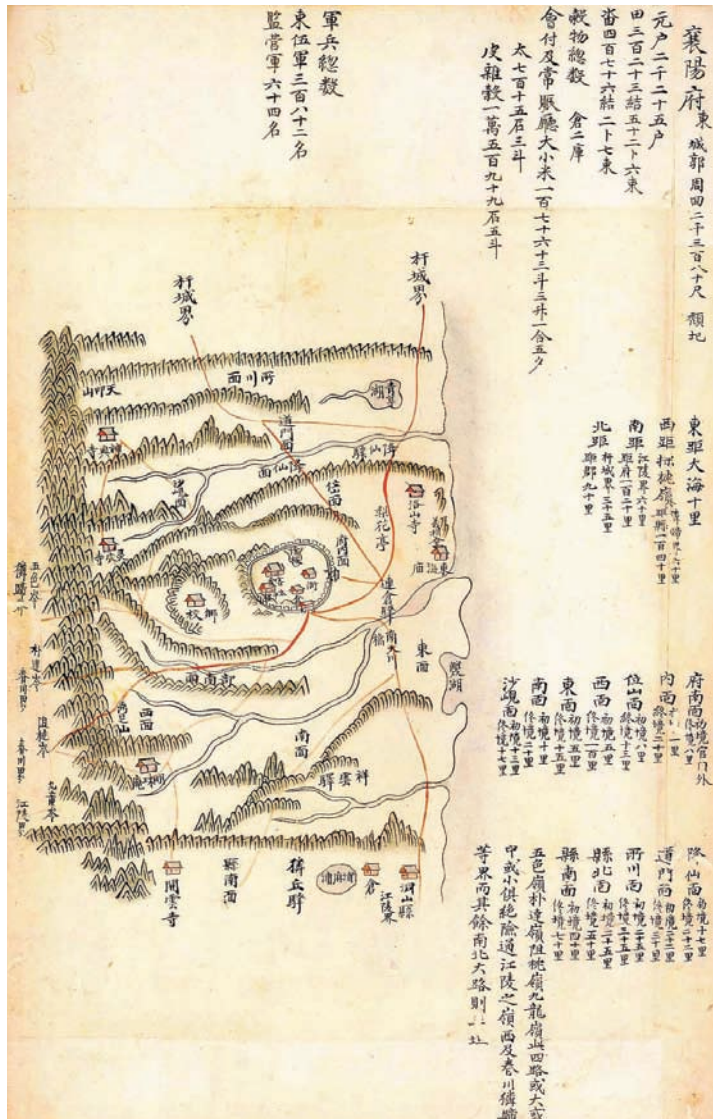 襄陽府東 城郭周四二千三百八十尺 頹圮
元戶二千二十五戶
田三百二十三結五十二卜六束
畓四百七十六結二卜七束
穀物總數 倉二庫
會付及常賑廳大小米一百七十六十三斗三升一合五夕
太七百十五石三斗
皮雜穀一萬五百九十九石五斗
軍兵總數
東伍軍三百八十二名
監營軍六十四名
東距大海十里
南距江陵界六十里 距府一百二十里
北距杆城界三十五里 距郡九十里
府南面初境官門外 終境八里
位山面初境八里 終境十三里
西面初境五里 終境一百里
東面初境五里 終境十五里
南面初境十里 終境二十里
沙峴面初境十三里 終境十七里
降仙面初境十七里 終境二十二里
道門面初境二十二里 終境三十里
所川面初境二十五里 終境三十五里
縣北面初境二十五里 終境五十里
縣南面初境四十里 終境七十里
五色嶺朴達嶺阻桃嶺九龍嶺此四路或大或
中或小俱絕險通江陵之嶺西及春川獜蹄
等界而其餘南北大路則
杆城界
杆城界
天吼山
所川面
青草湖
道門面
降仙面
降仙驛
神興寺
洛山寺
梨花亭
府內面
東海庙
鄉校
連倉驛
南大川
橋
東面
雙湖
府南面
西面
南面
祥雲驛
明珠庵
五色岺
朴達岺
春川界
春川界
九龍岺
江陵界
開雲寺
縣南面
獜丘驛
倉
江陵界
洞山縣